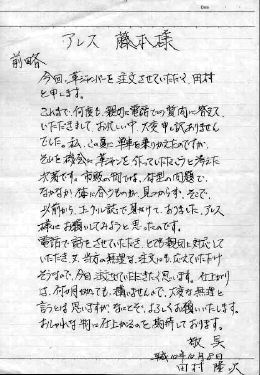 アレス 藤本様
前略
今回、革ジャンパーを注文させていただく、田村
と申します。
これまで、何度も、親切に電話での質問に答えて
いただきまして、お忙しい中、大変申し訳ありません
でした。私、この夏に単車を乗りかえたのですが、
それを機会に革ジャンを作っていただこうと考えた
次第です。市販の物では、体型の問題で、
なかなか体に合うものが、見つからず、そこで、
以前から、ミスター・バイク誌で見かけておりました、アレス
様にお願いしてみようと思ったのです。
電話で話をさせていただき、とても親切に対応して
いただき、又、当方の無理な注文にも、応えていただけ
そうなので、今回、注文させていただきたく思います。仕上がり
は、何カ月かかっても、構いませんので、大変な無理を
言うとは思いますが、なにとぞ、よろしくお願いいたします。
おしゃれな物に仕上がるのを期待しております。
敬具
平成10年10月8日
田村 隆次